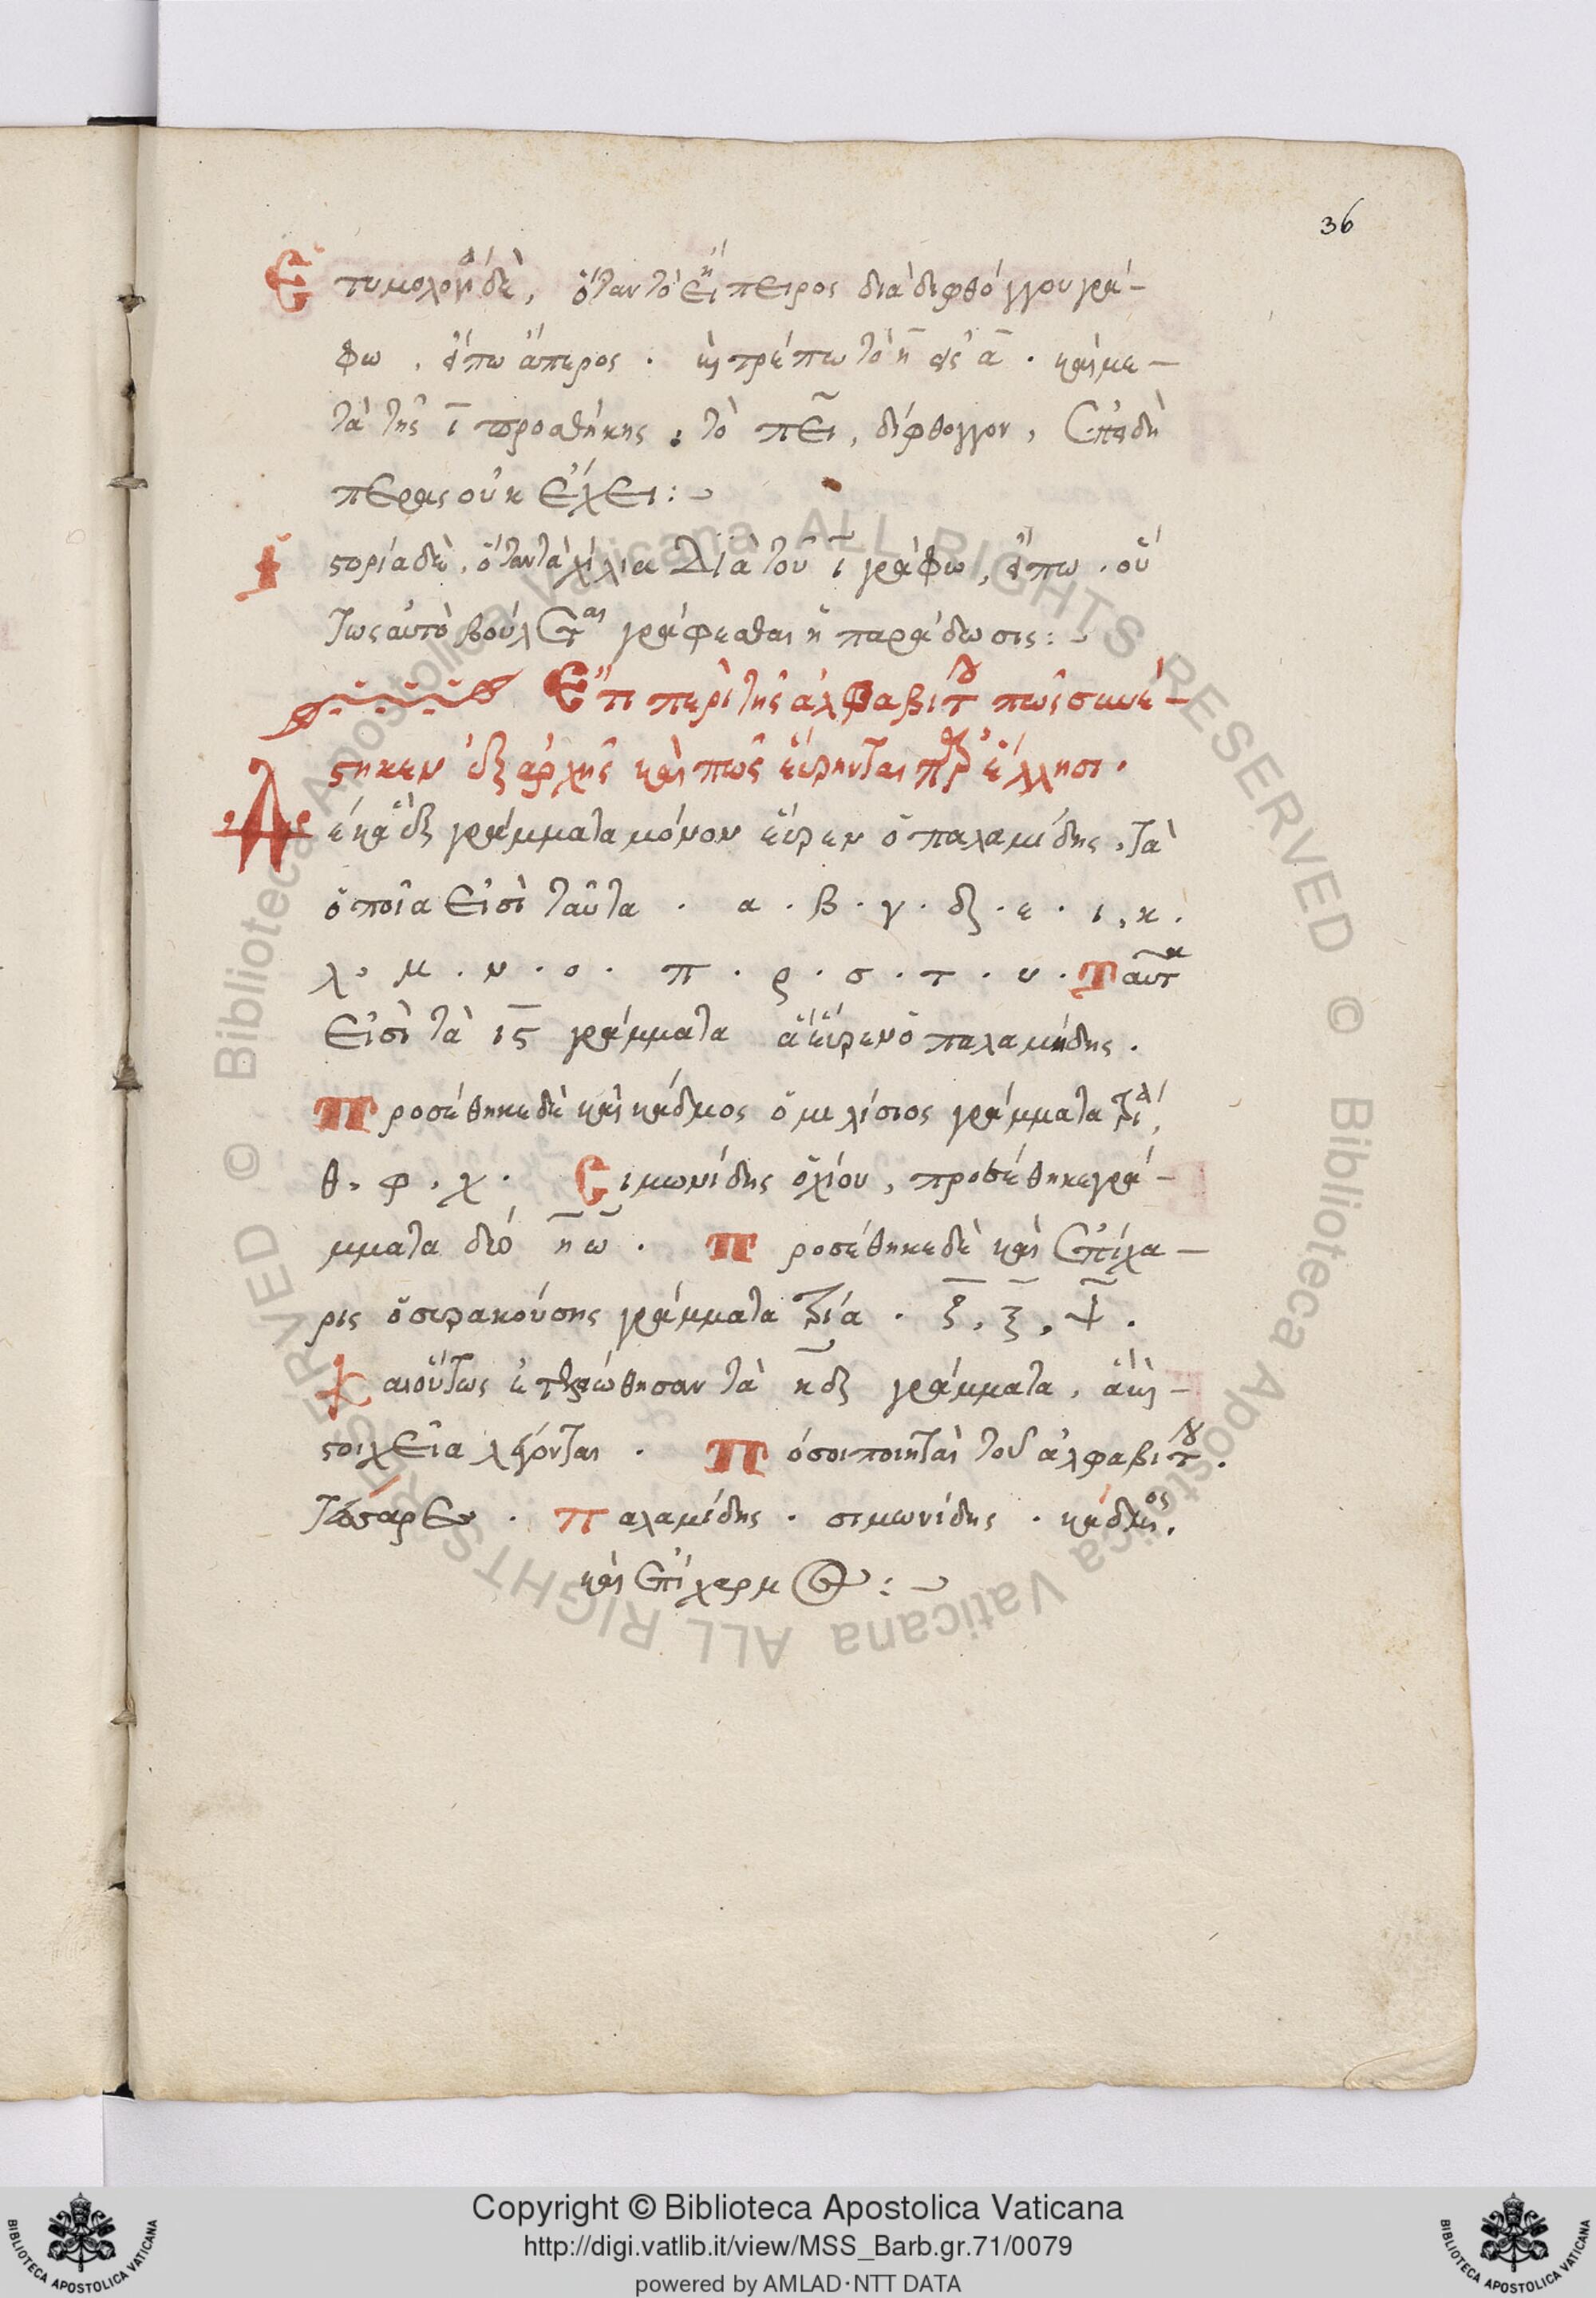 36
Ἐτυμολογία δὲ, ὅταν τὸ ἤπειρος διὰ διφθόγγου γρά-
φω, εἴπω ἄπερος. καὶ τρέπω τὸ η̄ εἰς ᾱ. καὶ με-
τὰ τῆς ῑ προσθήκης, τὸ πει, δίφθογγον, ἐπειδὴ
περας οὐκ ἔχει:
Ἱστορία δὲ, ὅταν τὰ χίλια διὰ τοῦ ῑ γράφω, εἴπω. οὕ
τως αὐτὸ βούλεται γράφεσθαι ἡ παράδωσις:
Ἔτι περὶ τῆς ἀλφαβίτου πῶς συνέ-
στηκεν ἐξ ἀρχῆς καὶ πῶς εὕρηνται παρ' ἕλλησι.
Δέκα ἓξ γράμματα μόνον εὗρεν ὁ παλαμίδης, τὰ
ὁποῖα εἰσὶ ταῦτα. α. β. γ. δ. ε. ι, κ.
λ. μ. ν. ο. π. ρ. σ. τ. υ. Ταῦτα
εἰσὶ τὰ ις γράμματα ἃ εὗρεν ὁ παλαμήδης.
Προσέθηκε δὲ καὶ κάδμος ὁ μιλίσιος γράμματα τρία,
θ. φ. χ. Σιμωνίδης ὁ χίου, προσέθηκε γρά-
μματα δύο η̄ ω̄. Προσέθηκε δὲ καὶ ἐπίχα-
ρις ὁ συρακούσης γράμματα τρία. ζ̄, ξ̄, ψ̄.
Καὶ οὕτως ἐπληρώθησαν τὰ κδ γράμματα, ἃ καὶ
στοιχεῖα λέγονται. Πόσοι ποιηταὶ τοῦ ἀλφαβίτου.
τέσσαρες. Παλαμίδης. σιμωνίδης. κάδμος.
καὶ ἐπίχαρμος:
Copyright © Biblioteca Apostolica Vaticana
http://digi.vatlib.it/view/MSS_Barb.gr.71/0079
powered by AMLAD·NTT DATA
BIBLIOTECA APOSTOLICA VATICANA
BIBLIOTECA APOSTOLICA VATICANA
© Biblioteca Apostolica Vaticana ALL RIGHTS RESERVED
© Biblioteca Apostolica Vaticana ALL RIGHTS RESERVED